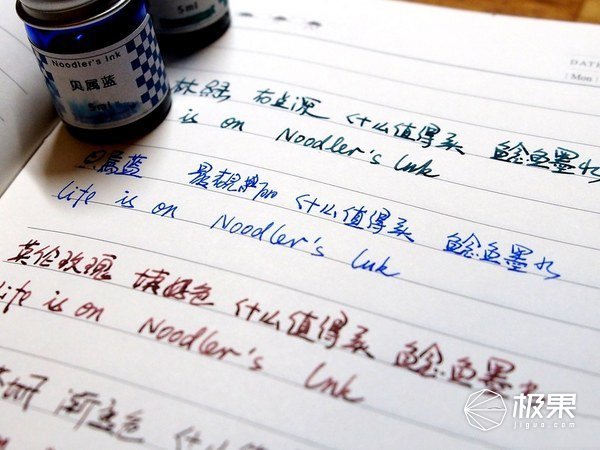 Noodler's Ink
贝属蓝
5ml
5ml
DATE
Mon
林绿 有点深 什么值得买 鲶鱼墨水
is on Noodler's Ink
贝属蓝 什么值得买 鲶鱼墨水
Life is on Noodler's Ink
英伦玫瑰 填好色 什么值得买 鲶鱼墨水
Life is on Noodler's Ink
渐变色 什么值
极果
jiguo.com